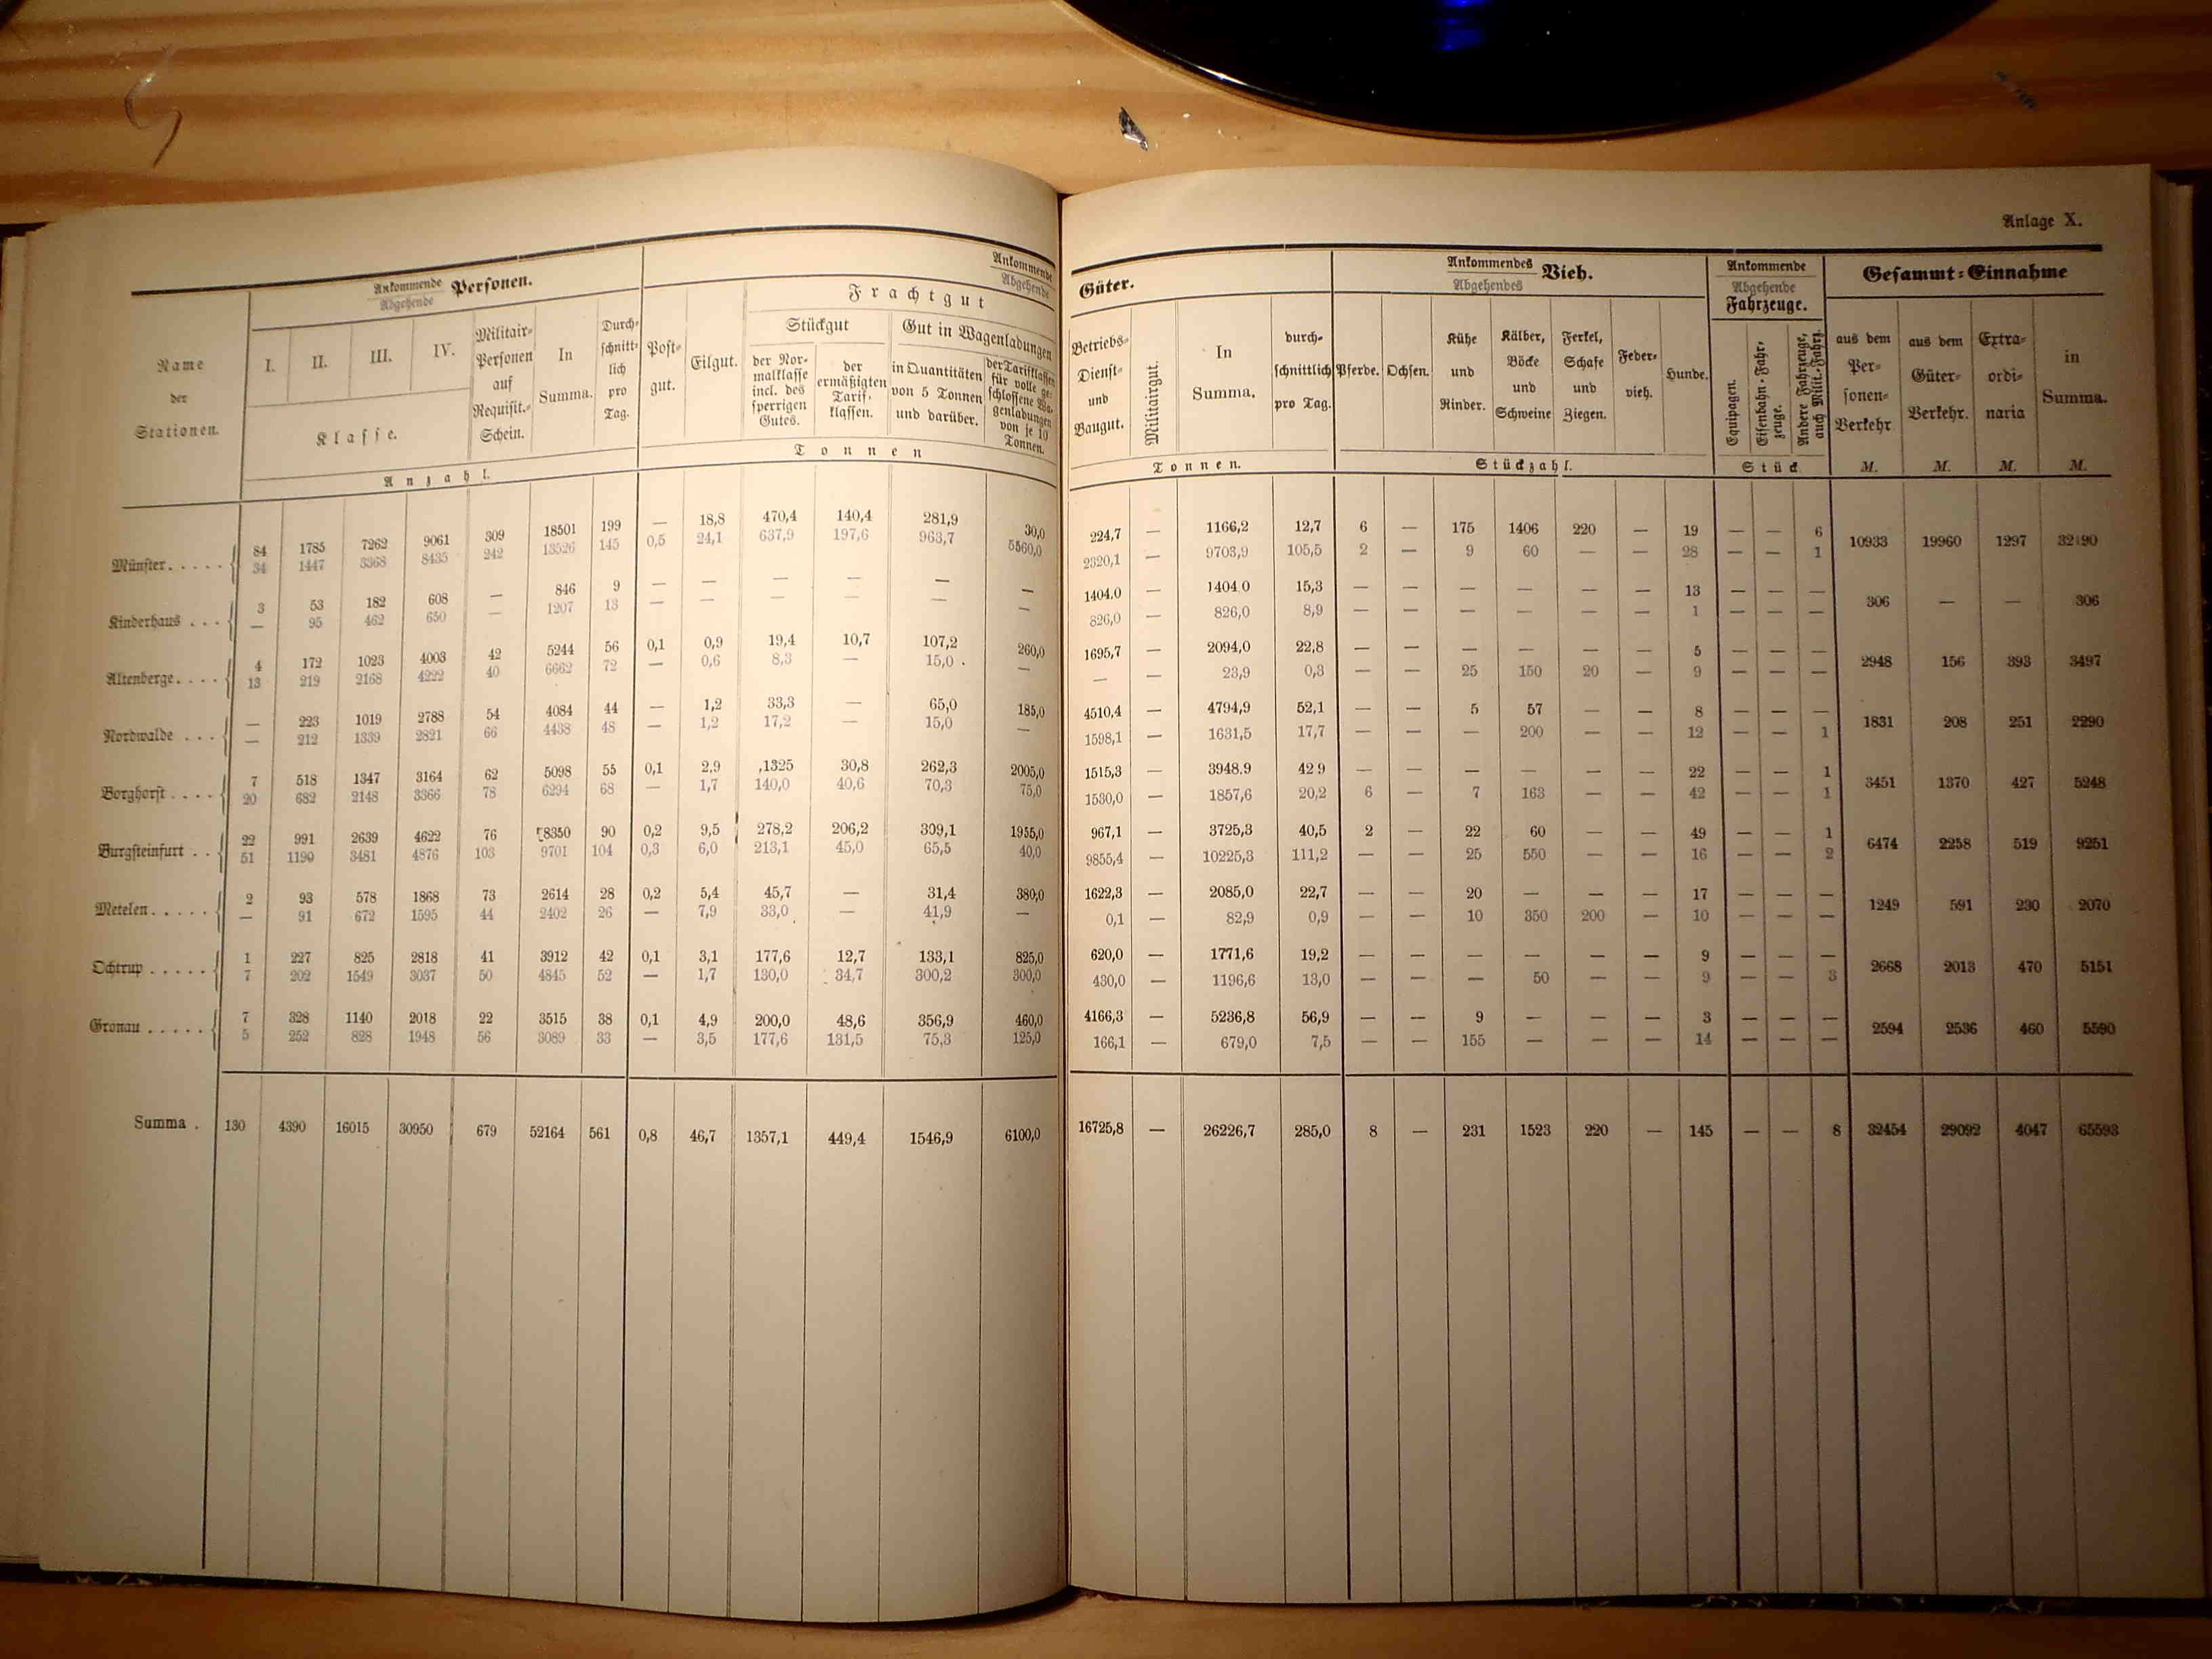 Anlage X.
Name der Stationen.
Ankommende Abgehende Personen.
I. II. III. IV. Klasse.
Militair-Personen auf Requisit.-Schein.
In Summa.
Durchschnittlich pro Tag.
Anzahl.
Ankommende Abgehende Güter.
Postgut.
Eilgut.
Frachtgut
Stückgut
der Normalklasse incl. des sperrigen Gutes.
der ermäßigten Tarifklassen.
Gut in Wagenladungen
in Quantitäten von 5 Tonnen und darüber.
der Tarifklassen für volle geschlossene Wagenladungen von je 10 Tonnen.
Tonnen
Betriebs- Dienst- und Baugut.
Militairgut.
In Summa.
durchschnittlich pro Tag.
Tonnen.
Ankommendes Abgehendes Vieh.
Pferde.
Ochsen.
Kühe und Rinder.
Kälber, Böcke und Schweine
Ferkel, Schafe und Ziegen.
Federvieh.
Hunde.
Stückzahl.
Ankommende Abgehende Fahrzeuge.
Equipagen.
Eisenbahn-Fahrzeuge.
Andere Fahrzeuge, auch Milit.-Fahrz.
Stück
Gesammt-Einnahme
aus dem Personen-Verkehr M.
aus dem Güter-Verkehr. M.
Extraordinaria M.
in Summa. M.
Münster. . . . . 84 1785 7262 9061 309 18501 199 — 18,8 470,4 140,4 281,9 30,0 224,7 — 1166,2 12,7 6 — 175 1406 220 — 19 — — 6 10933 19960 1297 32190
34 1447 3368 8435 242 13526 145 0,5 24,1 637,9 197,6 963,7 5560,0 2320,1 — 9703,9 105,5 2 — 9 60 — — 28 — — 1
Kinderhaus . . . 3 53 182 608 — 846 9 — — — — — — 1404,0 — 1404 0 15,3 — — — — — — 13 — — — 306 — — 306
— 95 462 650 — 1207 13 — — — — — — 826,0 — 826,0 8,9 — — — — — — 1 — — —
Altenberge. . . . 4 172 1023 4003 42 5244 56 0,1 0,9 19,4 10,7 107,2 260,0 1695,7 — 2094,0 22,8 — — — — — — 5 — — — 2948 156 393 3497
13 219 2168 4222 40 6662 72 — 0,6 8,3 — 15,0 — — — 23,9 0,3 — — 25 150 20 — 9 — — —
Nordwalde . . . — 223 1019 2788 54 4084 44 — 1,2 33,3 — 65,0 185,0 4510,4 — 4794,9 52,1 — — 5 57 — — 8 — — — 1831 208 251 2290
— 212 1339 2821 66 4438 48 — 1,2 17,2 — 15,0 — 1598,1 — 1631,5 17,7 — — — 200 — — 12 — — 1
Borghorst . . . . 7 518 1347 3164 62 5098 55 0,1 2,9 ,1325 30,8 262,3 2005,0 1515,3 — 3948.9 42 9 — — — — — — 22 — — 1 3451 1370 427 5248
20 682 2148 3366 78 6294 68 — 1,7 140,0 40,6 70,3 75,0 1530,0 — 1857,6 20,2 6 — 7 163 — — 42 — — 1
Burgsteinfurt . . 22 991 2639 4622 76 8350 90 0,2 9,5 278,2 206,2 309,1 1955,0 967,1 — 3725,3 40,5 2 — 22 60 — — 49 — — 1 6474 2258 519 9251
51 1190 3481 4876 103 9701 104 0,3 6,0 213,1 45,0 65,5 40,0 9855,4 — 10225,3 111,2 — — 25 550 — — 16 — — 2
Metelen. . . . . 2 93 578 1868 73 2614 28 0,2 5,4 45,7 — 31,4 380,0 1622,3 — 2085,0 22,7 — — 20 — — — 17 — — — 1249 591 230 2070
— 91 672 1595 44 2402 26 — 7,9 33,0 — 41,9 — 0,1 — 82,9 0,9 — — 10 350 200 — 10 — — —
Ochtrup . . . . . 1 227 825 2818 41 3912 42 0,1 3,1 177,6 12,7 133,1 825,0 620,0 — 1771,6 19,2 — — — — — — 9 — — — 2668 2013 470 5151
7 202 1549 3037 50 4845 52 — 1,7 130,0 34,7 300,2 300,0 430,0 — 1196,6 13,0 — — — 50 — — 9 — — 3
Gronau . . . . . 7 328 1140 2018 22 3515 38 0,1 4,9 200,0 48,6 356,9 460,0 4166,3 — 5236,8 56,9 — — 9 — — — 3 — — — 2594 2536 460 5590
5 252 828 1948 56 3089 33 — 3,5 177,6 131,5 75,3 125,0 166,1 — 679,0 7,5 — — 155 — — — 14 — — —
Summa . 130 4390 16015 30950 679 52164 561 0,8 46,7 1357,1 449,4 1546,9 6100,0 16725,8 — 26226,7 285,0 8 — 231 1523 220 — 145 — — 8 32454 29092 4047 65593